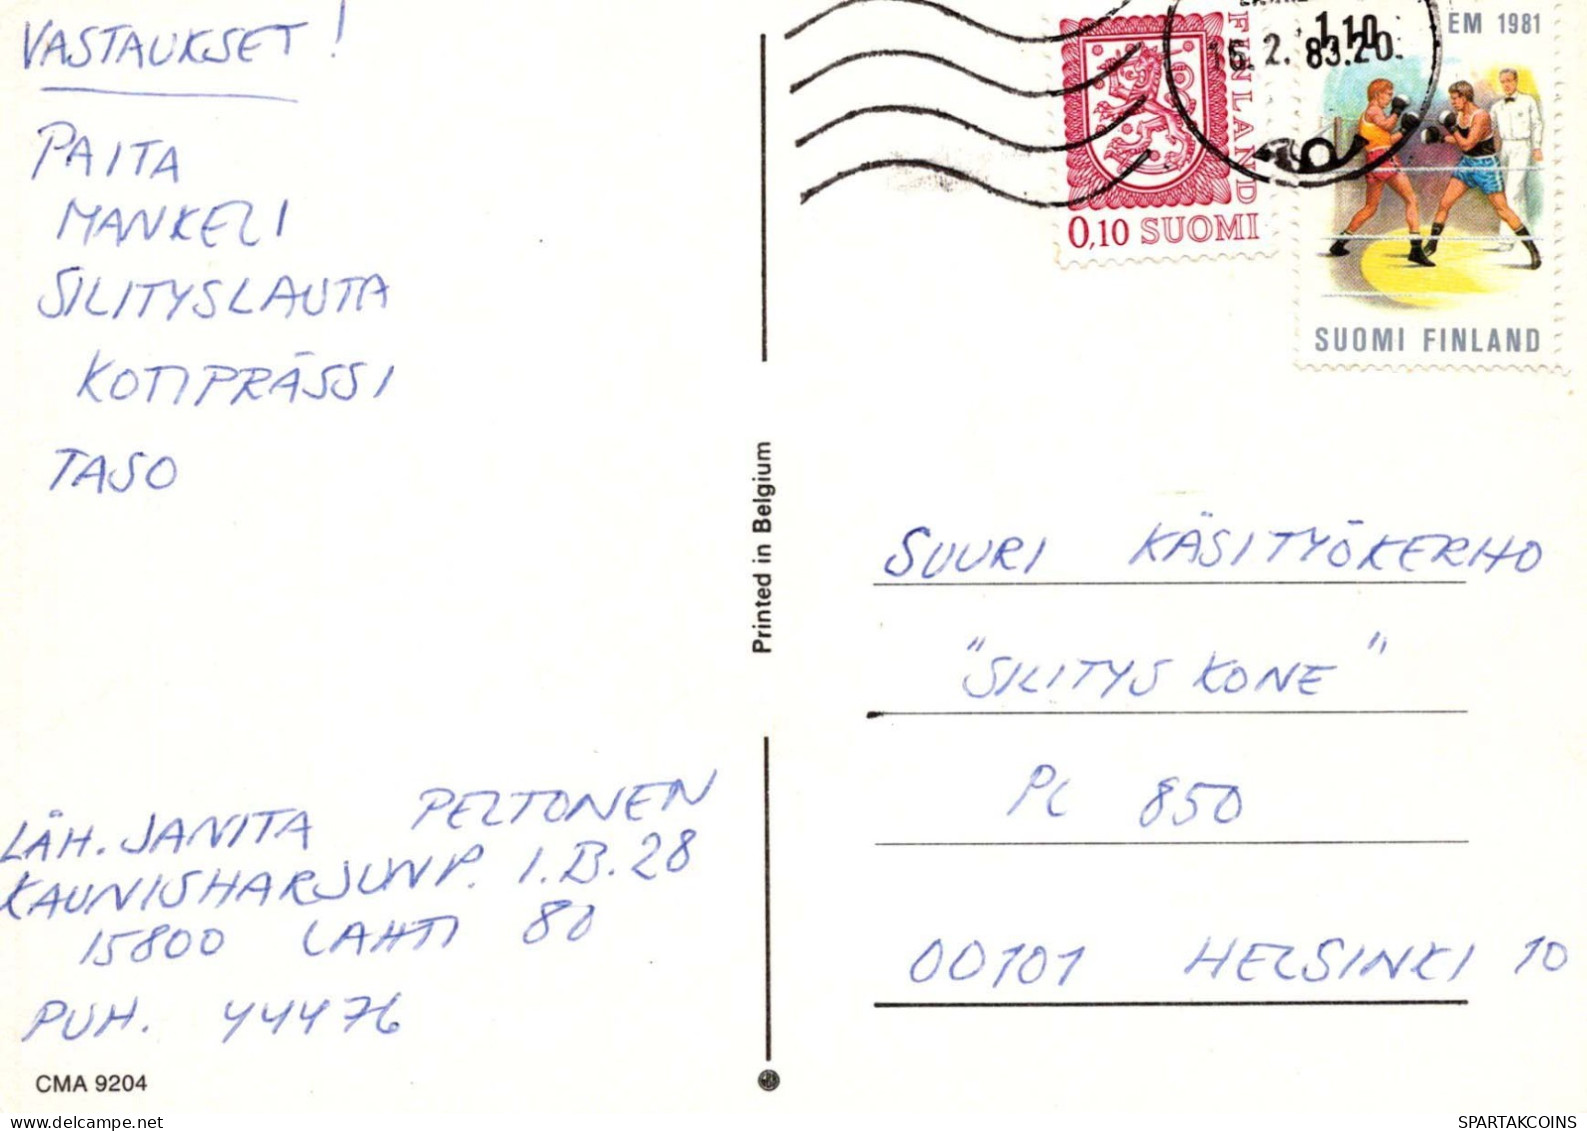 VASTAUKSET!
PAITA
MANKELI
SILITYSLAUTA
KOTIPRÄSSI
TASO
LÄH. JANITA PELTONEN
KAUNISHARJUNP. 1.B.28
15800 LAHTI 80
PUH. 44476
CMA 9204
Printed in Belgium
FINLAND
0,10 SUOMI
15.2.83.20
1,10
EM 1981
SUOMI FINLAND
SUURI KÄSITYÖKERHO
"SILITYS KONE"
PL 850
00101 HELSINKI 10
SPARTAKCOINS